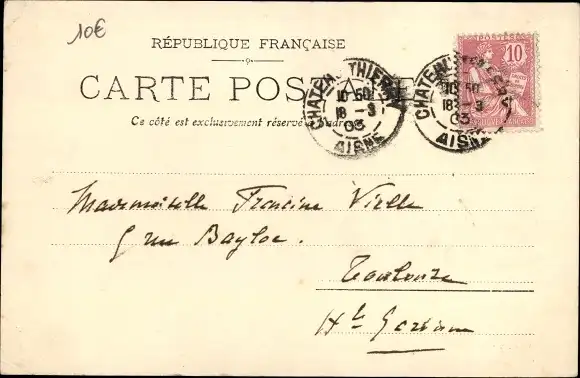 10€
RÉPUBLIQUE FRANÇAISE
CARTE POSTALE
Ce côté est exclusivement réservé à l'adresse
CHATEAU-THIERRY
10 50
18 -3
03
AISNE
CHATEAU-THIERRY
10 50
18 -3
03
AISNE
POSTES
10
Mademoiselle Francine Vielle
5 rue Bayloc.
Toulouse
Hte Garonne